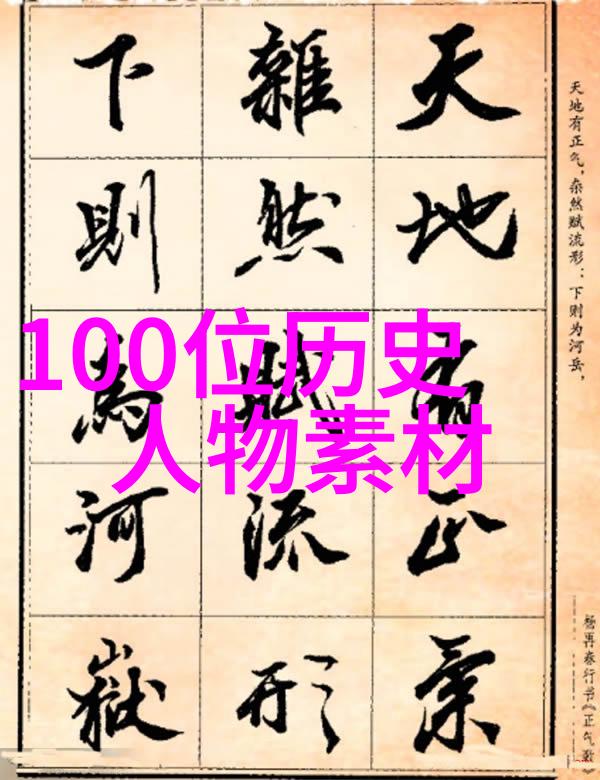 100位历史
人物素材
天地有正氣
雜然賦流形
下則為河嶽
天地有正气，杂然赋流形：下则为河岳，
杨再春行书《正气歌》